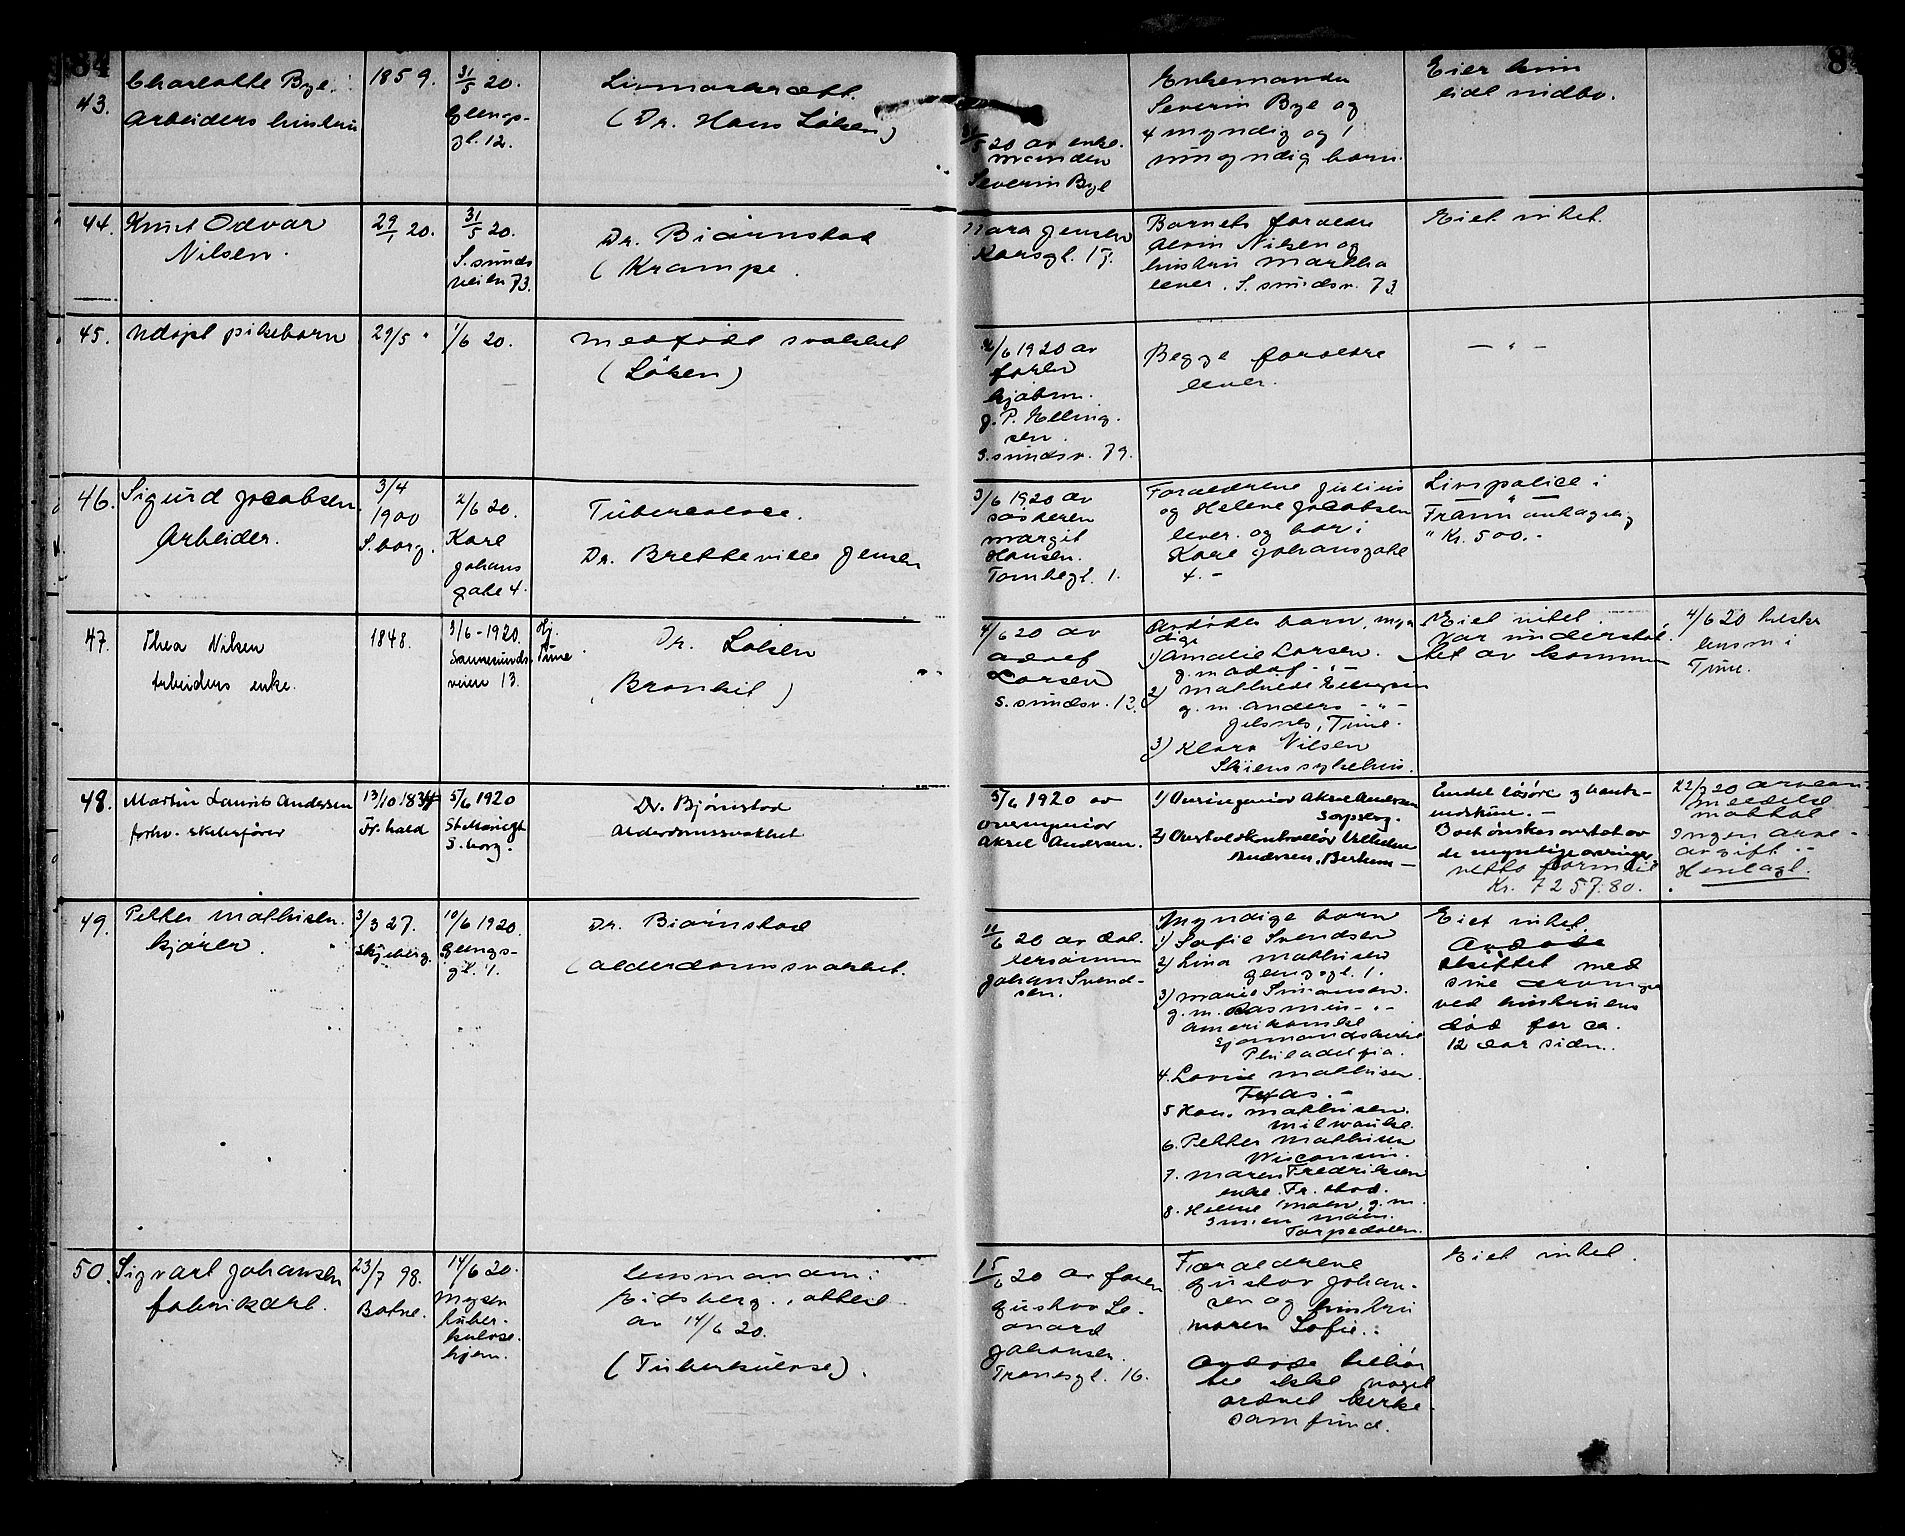 84
43.
Charlotte Bye.
Arbeiders hustru
1859.
31/5 20.
Glengs-
gt. 12.
Livmorkræft.
(Dr. Hans Løken)
31/5 20 av enke-
manden
Severin Bye
Enkemanden
Severin Bye og
4 myndig og 1
umyndig barn.
Eier kun
lidt indbo.
44.
Knut Odvar
Nilsen.
29/1 20.
31/5 20.
S.sunds
veien 73.
Dr. Bjørnstad
(Krampe.
Jensen
Korsgt. 17.
Barnets forældre
Nilsen og
hustru Martha
lever. S.sundsv. 73.
Eiet intet.
45.
Udøpt pikebarn
29/5 "
1/6 20.
Medfødt svakhet
(Løken)
/6 1920 av
faren
kjøbm.
J. P. Elling-
sen.
S.sundsv. 79.
Begge forældre
lever.
— " —
46.
Sigurd Jacobsen
Arbeider.
3/4
1900
S.borg.
2/6 20.
Karl
Johans
gate 4.
Tuberculose.
Dr. Bretteville Jensen
3/6 1920 av
søsteren
Margit
Hansen.
Tombegt. 1.
Forældrene Julius
og Helene Jacobsen
lever og bor i
Karl Johansgate
4. -
Livspolice i
Fram antagelig
" Kr. 500. -
47.
Thea Nilsen
Arbeiders enke.
1848.
3/6 - 1920.
Sannesunds-
veien 13.
Hj.
Tune
Dr. Løken
(Bronkit)
4/6 20 av
Adolf
Larsen
S.sundsv. 13.
Avdødes barn, myn
dige
1) Amalie Larsen.
g. m. Adolf - " -
2) Mathilde Ellingsen
g. m. Anders - " -
Jelsnes, Tune.
3) Klara Nilsen
Skiens sykehus.
Eiet intet.
Var understøt-
tet av kommun
4/6 20
lensm i
Tune.
48.
Martin Laurits Andersen
forhv. skibsfører
13/10 1834
Fr.hald
5/6 1920
St.Mariegt
S.borg.
Dr. Bjørnstad
Alderdomssvakhet
5/6 1920 av
overingeniør
Aksel Andersen.
1) Overingeniør Aksel Andersen
Sarpsborg.
2) Overtoldkontrollør Vilhelm
Andersen, Bergen —
Endel løsøre og bank-
indskud. -
Boet ønskes overtat av
de myndige arvinger
netto formue
Kr. 7257.80.
22/7 20 arvean
meldelse
mottat
Ingen arve-
avgift. -
Henlagt.
49.
Petter Mathisen.
kjører.
3/3 27.
Skjeberg.
10/6 1920.
Glengs-
gt. 1.
Dr. Bjørnstad
(Alderdomssvakhet.
11/6 20 av dat-
tersønnen
Johan Svend-
sen.
Myndige barn
1) Sofie Svendsen
2) Lina Mathisen
Glengsgt. 1.
3) Marie Simonsen.
g. m. Rasmus - " -
Amerikanske
Sjømandskirke
Philadelfia.
4. Lovise Mathisen.
Texas. -
5 Han. Mathisen.
Milwauke.
6. Petter Mathisen
Wisconsin.
7. Maren Fredriksen
enke. Fr.stad.
8. Helene Moen, g. m.
Moen.
Torpedalen.
Eiet intet.
Avdøde
skiftet med
sine arvinger
ved hustruens
død for ca.
12 aar siden.
50.
Sigvart Johansen
fabrikarb.
23/7 98.
Botne.
14/6 20.
Mysen
tuber-
kulose-
hjem.
Lensmanden i
Eidsberg, attest
av 14/6 20.
(Tuberkulose).
15/6 20 av faren
Gustav Le-
onard
Johansen.
Tranesgt. 16.
Forældrene
Gustav Johan-
sen og hustru
Maren Sofie.
Avdøde tilhør
te ikke noget
andet kirke-
samfund.
Eiet intet.